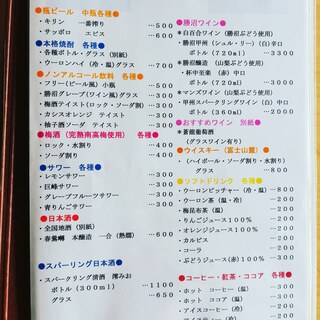 ●瓶ビール 中瓶各種●
・キリン 一番搾り …500
・サッポロ ヱビス …600
●本格焼酎 各種●
・各種ボトル・グラス(別紙)
・ウーロンハイ(冷・温)グラス …700
●ノンアルコール飲料 各種●
・フリー(ビール風)小瓶 …500
・勝沼グレープ(ワイン風)グラス …500
・梅酒テイスト(ロック・ソーダ割) …300
・カシスオレンジ テイスト …300
・柚子酒ソーダ テイスト …300
●梅酒(完熟南高梅使用) 各種●
・ロック・水割り …500
・ソーダ割り …400
●サワー 各種●
・レモンサワー …350
・巨峰サワー …350
・グレープフルーツサワー …350
・青りんごサワー …350
●日本酒●
・全国地酒(別紙)
・春鶯囀 本醸造 一合(熱燗) …600
●スパーリング日本酒●
・スパークリング清酒 澪みお
ボトル(300ml) …1100
グラス …650
●勝沼ワイン●
*百百合ワイン(勝沼ぶどう使用)
・勝沼甲州(シュル・リー)(白)辛口
ボトル(720ml) …3300
*勝沼醸造 (山梨ぶどう使用)
・杯中至楽(赤)中口
ボトル(720ml) …3800
*マンズワイン(山梨ぶどう使用)
・甲州スパークリングワイン(白)中口
ボトル(360ml) …2000
●おすすめワイン 別紙●
*蒼龍葡萄酒
(グラスワイン有り)
●ウイスキー(富士山麓)●
(ハイボール・ソーダ割り・水割り)
・グラス …800
●ソフトドリンク 各種●
・ウーロンピッチャー(冷・温) …800
・ウーロン茶(冷・温) …200
・梅昆布茶(温) …200
・りんごジュース100% …200
・オレンジジュース100% …200
・カルピス …200
・コーラ …200
・ぶどうジュース(赤)100% …300
●コーヒー・紅茶・ココア 各種●
・ホット コーヒー(温) …300
・ホット ココア(温) …300
・アイスコーヒー(冷)
・アイスティー(冷)